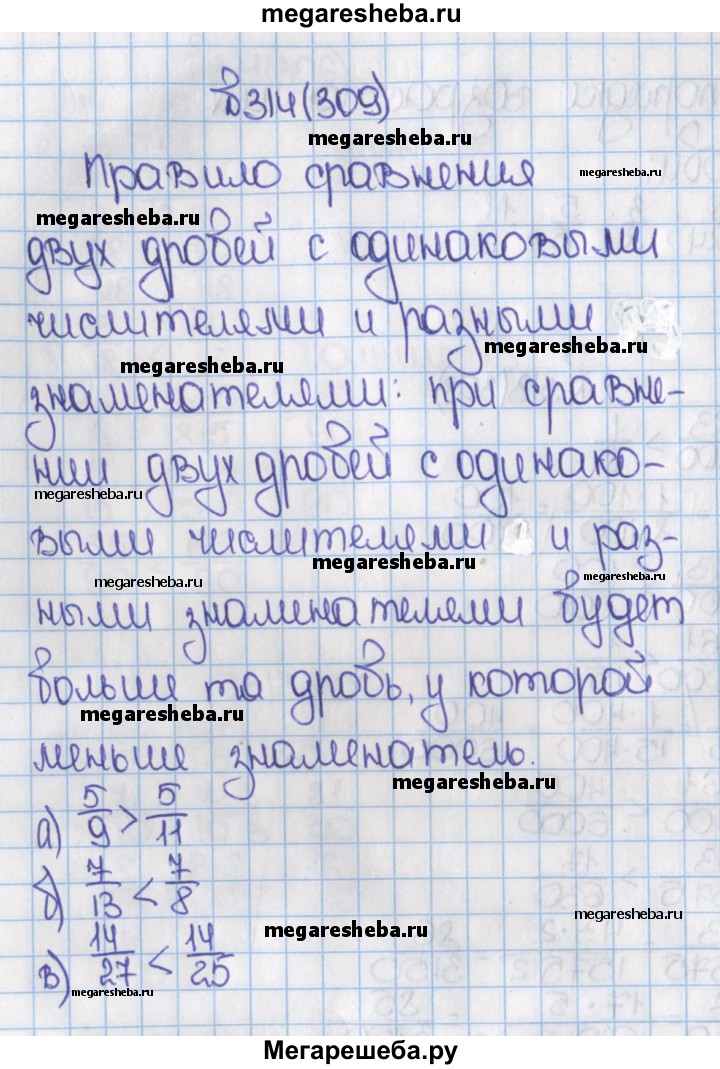 megaresheba.ru
В 314 (309)
megaresheba.ru
Правило сравнения
megaresheba.ru
megaresheba.ru
двух дробей с одинаковыми
числителями и разными
megaresheba.ru
megaresheba.ru
знаменателями: при сравне-
нии двух дробей с одинако-
megaresheba.ru
выми числителями и раз-
megaresheba.ru
megaresheba.ru
megaresheba.ru
ными знаменателеми будет
больше та дробь, у которой
megaresheba.ru
меньше знаменатель.
megaresheba.ru
а) 5/9 > 5/11
б) 7/13 < 7/8
megaresheba.ru
megaresheba.ru
в) 14/27 < 14/25
megaresheba.ru
Мегарешеба.ру